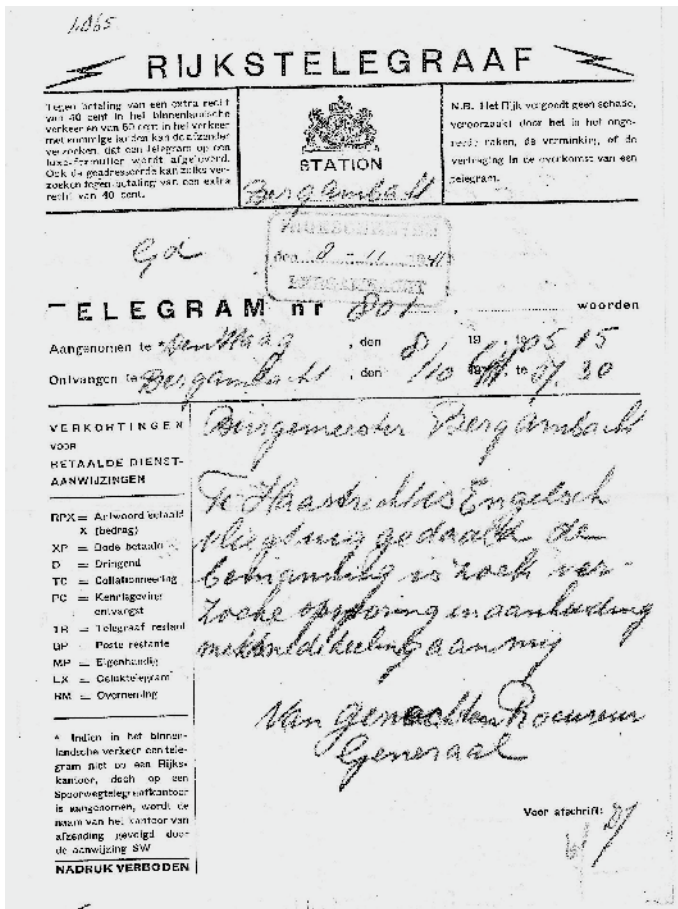 1065
RIJKSTELEGRAAF
Tegen betaling van een extra recht
van 40 cent in het binnenlandsche
verkeer en van 60 cent in het verkeer
met sommige landen kan de afzender
verzoeken, dat een telegram op een
luxe-formulier wordt afgeleverd.
Ook de geadresseerde kan zulks ver-
zoeken tegen betaling van een extra
recht van 40 cent.
STATION
Bergambacht
N.B. Het Rijk vergoedt geen schade,
veroorzaakt door het in het onge-
reede raken, de verminking, of de
vertraging in de overkomst van een
telegram.
Gd
den 8 - 11 1941
BERGAMBACHT
TELEGRAM nr 801 woorden
Aangenomen te Den Haag, den 8/ 19 05 15
Ontvangen te Bergambacht, den te 07.30
VERKORTINGEN
VOOR
BETAALDE DIENST-
AANWIJZINGEN
RPX = Antwoord betaald
X (bedrag)
XP = Bode betaald
D = Dringend
TC = Collationneering
PC = Kennisgeving
ontvangst
TR = Telegraaf restant
GP = Poste restante
MP = Eigenhandig
LX = Geluktelegram
RM = Overneming
* Indien in het binnen-
landsche verkeer een tele-
gram niet op een Rijks-
kantoor, doch op een
Spoorwegtelegraafkantoor
is aangenomen, wordt de
naam van het kantoor van
afzending gevolgd door
de aanwijzing SW
NADRUK VERBODEN
Burgemeester Bergambacht
Te Haastrecht is Engelsch
vliegtuig gedaald de
bemanning is zoek ver-
zoeke opsporing en aanhouding
mededeeling aan mij
Van Genechten Procureur
Generaal
Voor afschrift: